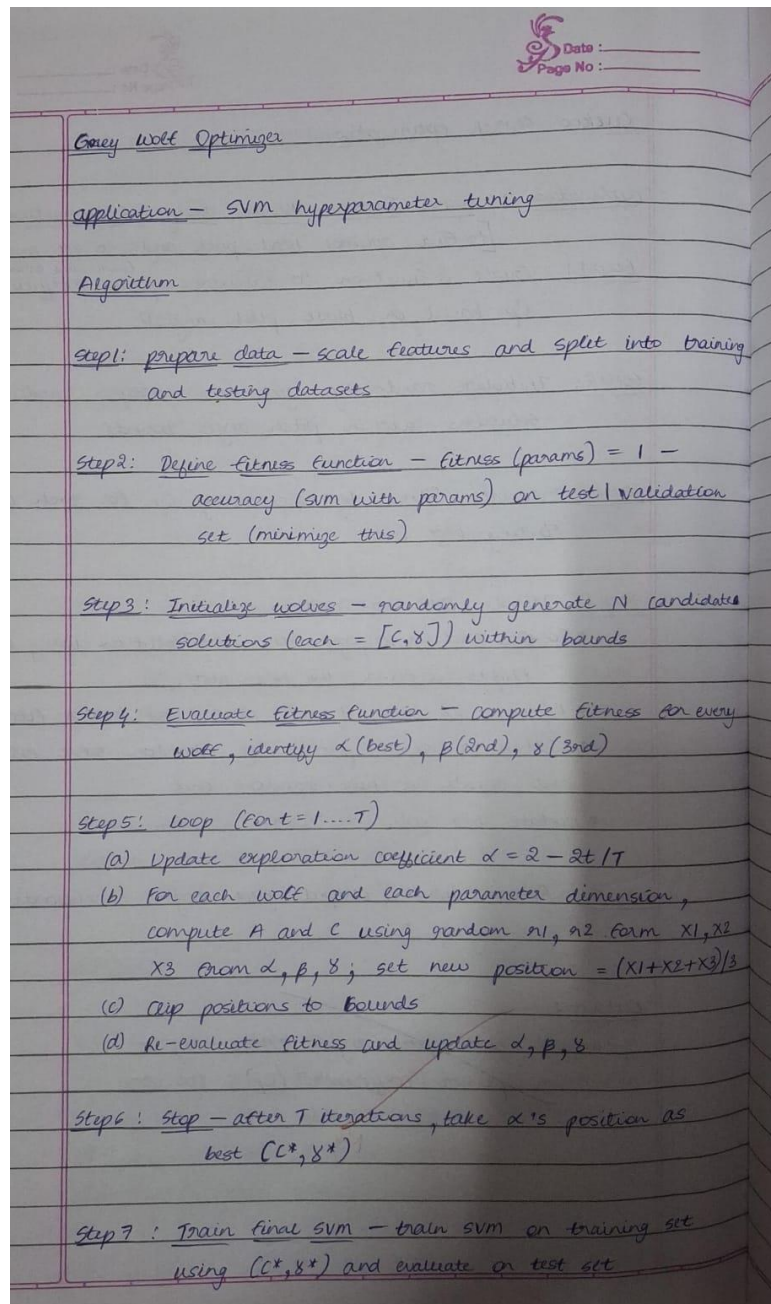 Date :
Page No :
Grey Wolf Optimizer
application - SVM hyperparameter tuning
Algorithm
Step1: prepare data - scale features and split into training
and testing datasets
Step2: Define fitness function - fitness (params) = 1 -
accuracy (SVM with params) on test | validation
set (minimize this)
Step 3: Initialize wolves - randomly generate N candidates
solutions (each = [C, γ]) within bounds
Step 4: Evaluate fitness function - compute fitness for every
wolf, identify α (best), β (2nd), γ (3rd)
Step 5: Loop (for t = 1....T)
(a) Update exploration coefficient α = 2 - 2t/T
(b) For each wolf and each parameter dimension,
compute A and C using random r1, r2 form X1, X2
X3 from α, β, γ; set new position = (X1+X2+X3)/3
(c) Clip positions to bounds
(d) Re-evaluate fitness and update α, β, γ
Step6: Stop - after T iterations, take α's position as
best (C*, γ*)
Step 7: Train final SVM - train SVM on training set
using (C*, γ*) and evaluate on test set